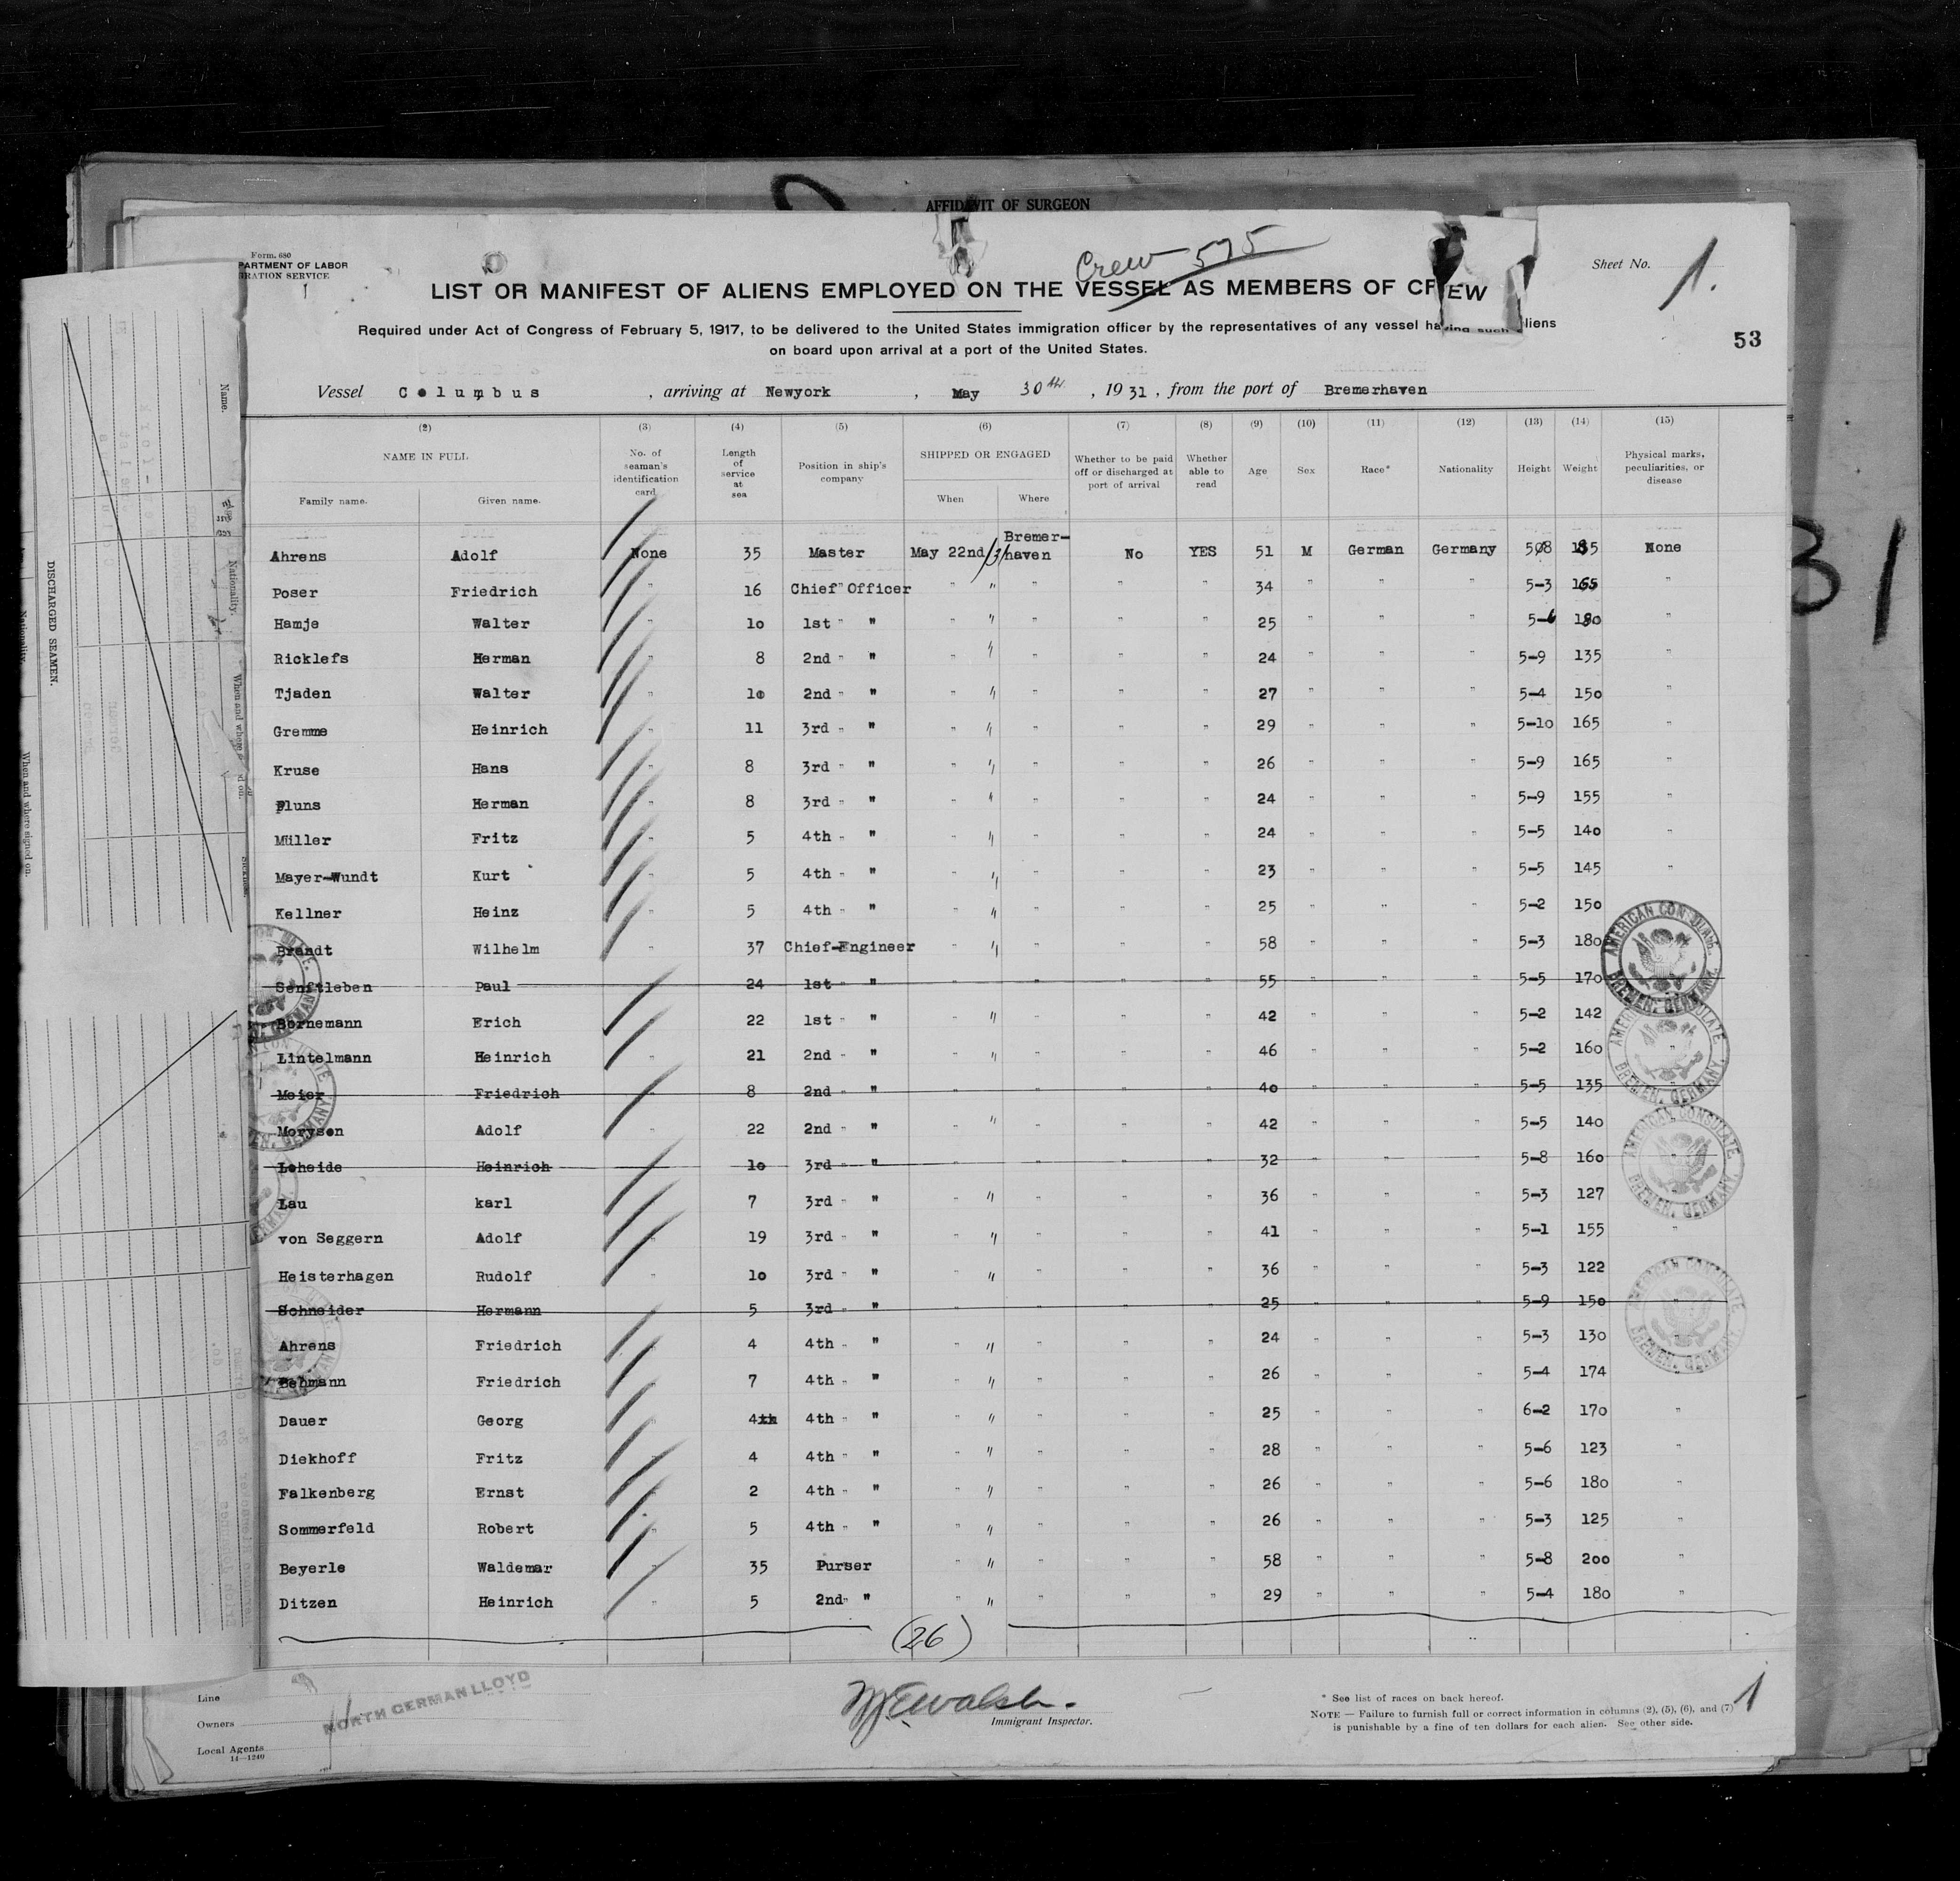 AFFIDAVIT OF SURGEON
Form. 680
PARTMENT OF LABOR
RATION SERVICE
Crew 575
Sheet No. 1.
LIST OR MANIFEST OF ALIENS EMPLOYED ON THE VESSEL AS MEMBERS OF CREW
Required under Act of Congress of February 5, 1917, to be delivered to the United States immigration officer by the representatives of any vessel having such aliens
on board upon arrival at a port of the United States.
53
Vessel Columbus , arriving at Newyork , May 30th , 1931 , from the port of Bremerhaven
(2) (3) (4) (5) (6) (7) (8) (9) (10) (11) (12) (13) (14) (15)
NAME IN FULL Family name. Given name. No. of seaman's identification card Length of service at sea Position in ship's company SHIPPED OR ENGAGED When Where Whether to be paid off or discharged at port of arrival Whether able to read Age Sex Race* Nationality Height Weight Physical marks, peculiarities, or disease
Ahrens Adolf None 35 Master May 22nd/31 Bremer-haven No YES 51 M German Germany 508 185 None
Poser Friedrich " 16 Chief " Officer " " " " " 34 " " " 5-3 165 "
Hamje Walter " 10 1st " " " " " " " 25 " " " 5-6 180 "
Ricklefs Herman " 8 2nd " " " " " " " 24 " " " 5-9 135 "
Tjaden Walter " 10 2nd " " " " " " " 27 " " " 5-4 150 "
Gremme Heinrich " 11 3rd " " " " " " " 29 " " " 5-10 165 "
Kruse Hans " 8 3rd " " " " " " " 26 " " " 5-9 165 "
Pluns Herman " 8 3rd " " " " " " " 24 " " " 5-9 155 "
Müller Fritz " 5 4th " " " " " " " 24 " " " 5-5 140 "
Mayer-Wundt Kurt " 5 4th " " " " " " " 23 " " " 5-5 145 "
Kellner Heinz " 5 4th " " " " " " " 25 " " " 5-2 150
Brandt Wilhelm " 37 Chief-Engineer " " " " " 58 " " " 5-3 180
Senftleben Paul 24 1st " " " " " " 55 " " " 5-5 170
Bornemann Erich 22 1st " " " " " " " 42 " " " 5-2 142
Lintelmann Heinrich " 21 2nd " " " " " " " 46 " " " 5-2 160 "
Meier Friedrich " 8 2nd " " " " " " 40 " " " 5-5 135 "
Morysen Adolf " 22 2nd " " " " " " " 42 " " " 5-5 140
Loheide Heinrich 10 3rd " " " " " " 32 " " " 5-8 160 "
Lau karl " 7 3rd " " " " " " " 36 " " " 5-3 127
von Seggern Adolf " 19 3rd " " " " " " " 41 " " " 5-1 155 "
Heisterhagen Rudolf " 10 3rd " " " " " " " 36 " " " 5-3 122
Schneider Hermann 5 3rd " " " " " " 25 " " " 5-9 150 "
Ahrens Friedrich " 4 4th " " " " " " " 24 " " " 5-3 130 "
Behmann Friedrich " 7 4th " " " " " " " 26 " " " 5-4 174 "
Dauer Georg " 4th 4th " " " " " " " 25 " " " 6-2 170 "
Diekhoff Fritz " 4 4th " " " " " " " 28 " " " 5-6 123 "
Falkenberg Ernst " 2 4th " " " " " " " 26 " " " 5-6 180 "
Sommerfeld Robert " 5 4th " " " " " " " 26 " " " 5-3 125 "
Beyerle Waldemar " 35 Purser " " " " " 58 " " " 5-8 200 "
Ditzen Heinrich " 5 2nd " " " " " " " 29 " " " 5-4 180 "
(26)
AMERICAN CONSULATE
BREMEN, GERMANY.
AMERICAN CONSULATE
BREMEN, GERMANY.
AMERICAN CONSULATE
BREMEN, GERMANY.
AMERICAN CONSULATE
BREMEN, GERMANY.
Line
Owners
Local Agents
14—1240
NORTH GERMAN LLOYD
Immigrant Inspector.
* See list of races on back hereof.
NOTE — Failure to furnish full or correct information in columns (2), (5), (6), and (7)
is punishable by a fine of ten dollars for each alien. See other side.
1
31
DISCHARGED SEAMEN.
Name.
Nationality.
When and where signed on.